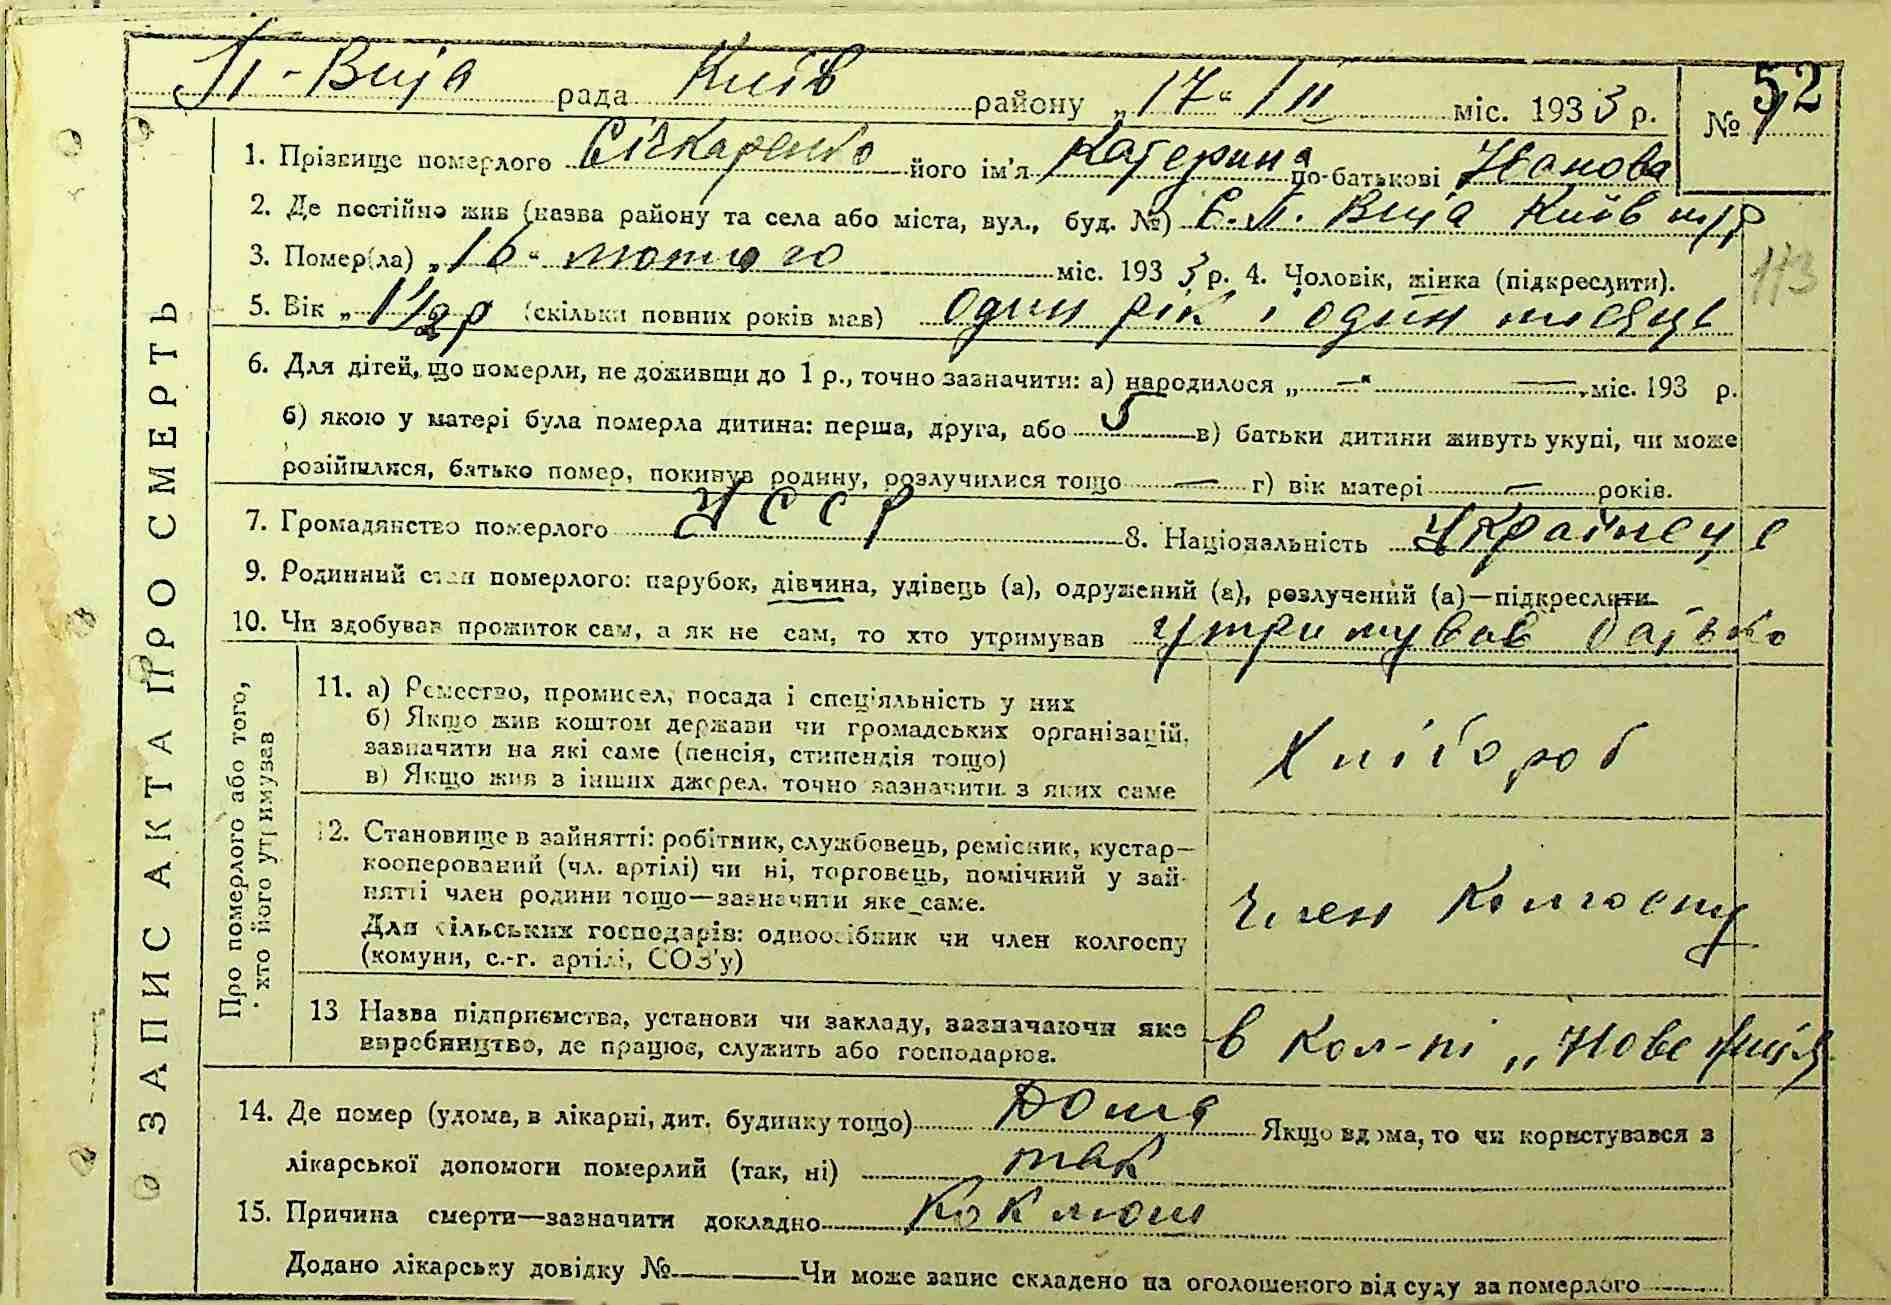 П-Вија рада Київ району „17“ III міс. 1933 р. № 52
1. Прізвище померлого Січкаренко його ім'я Катерина по-батькові Іванова
2. Де постійно жив (назва району та села або міста, вул., буд. №) С. П. Вија Київ м/р
3. Помер(ла) „16“ лютого міс. 1933 р. 4. Чоловік, жінка (підкреслити).
113
5. Вік „1 1/2 р (скільки повних років мав) один рік і один місяць
6. Для дітей, що померли, не доживши до 1 р., точно зазначити: а) народилося „—“ — міс. 193 р.
б) якою у матері була померла дитина: перша, друга, або 5 в) батьки дитини живуть укупі, чи може
розійшлися, батько помер, покинув родину, розлучилися тощо — г) вік матері — років.
7. Громадянство померлого УССР 8. Національність Українець
9. Родинний стан померлого: парубок, дівчина, удівець (а), одружений (а), розлучений (а)—підкреслити
10. Чи здобував прожиток сам, а як не сам, то хто утримував утримував батько
ЗАПИС АКТА ПРО СМЕРТЬ
Про померлого або того,
хто його утримував
11. а) Ремество, промисел, посада і спеціяльність у них
б) Якщо жив коштом держави чи громадських організацій,
зазначити на які саме (пенсія, стипендія тощо)
в) Якщо жив з інших джерел, точно зазначити з яких саме
Хлібороб
12. Становище в зайнятті: робітник, службовець, ремісник, кустар—
кооперований (чл. артілі) чи ні, торговець, помічний у зай-
нятті член родини тощо—зазначити яке саме.
Для сільських господарів: одноосібник чи член колгоспу
(комуни, с.-г. артілі, СОЗ'у)
член колгоспу
13 Назва підприємства, установи чи закладу, зазначаючи яке
виробництво, де працює, служить або господарює.
в кол-пі „Нове життя
14. Де помер (удома, в лікарні, дит. будинку тощо) Дома Якщо вдома, то чи користувався з
лікарської допомоги померлий (так, ні) так
15. Причина смерти—зазначити докладно Коклюш
Додано лікарську довідку № — Чи може запис складено на оголошеного від суду за померлого